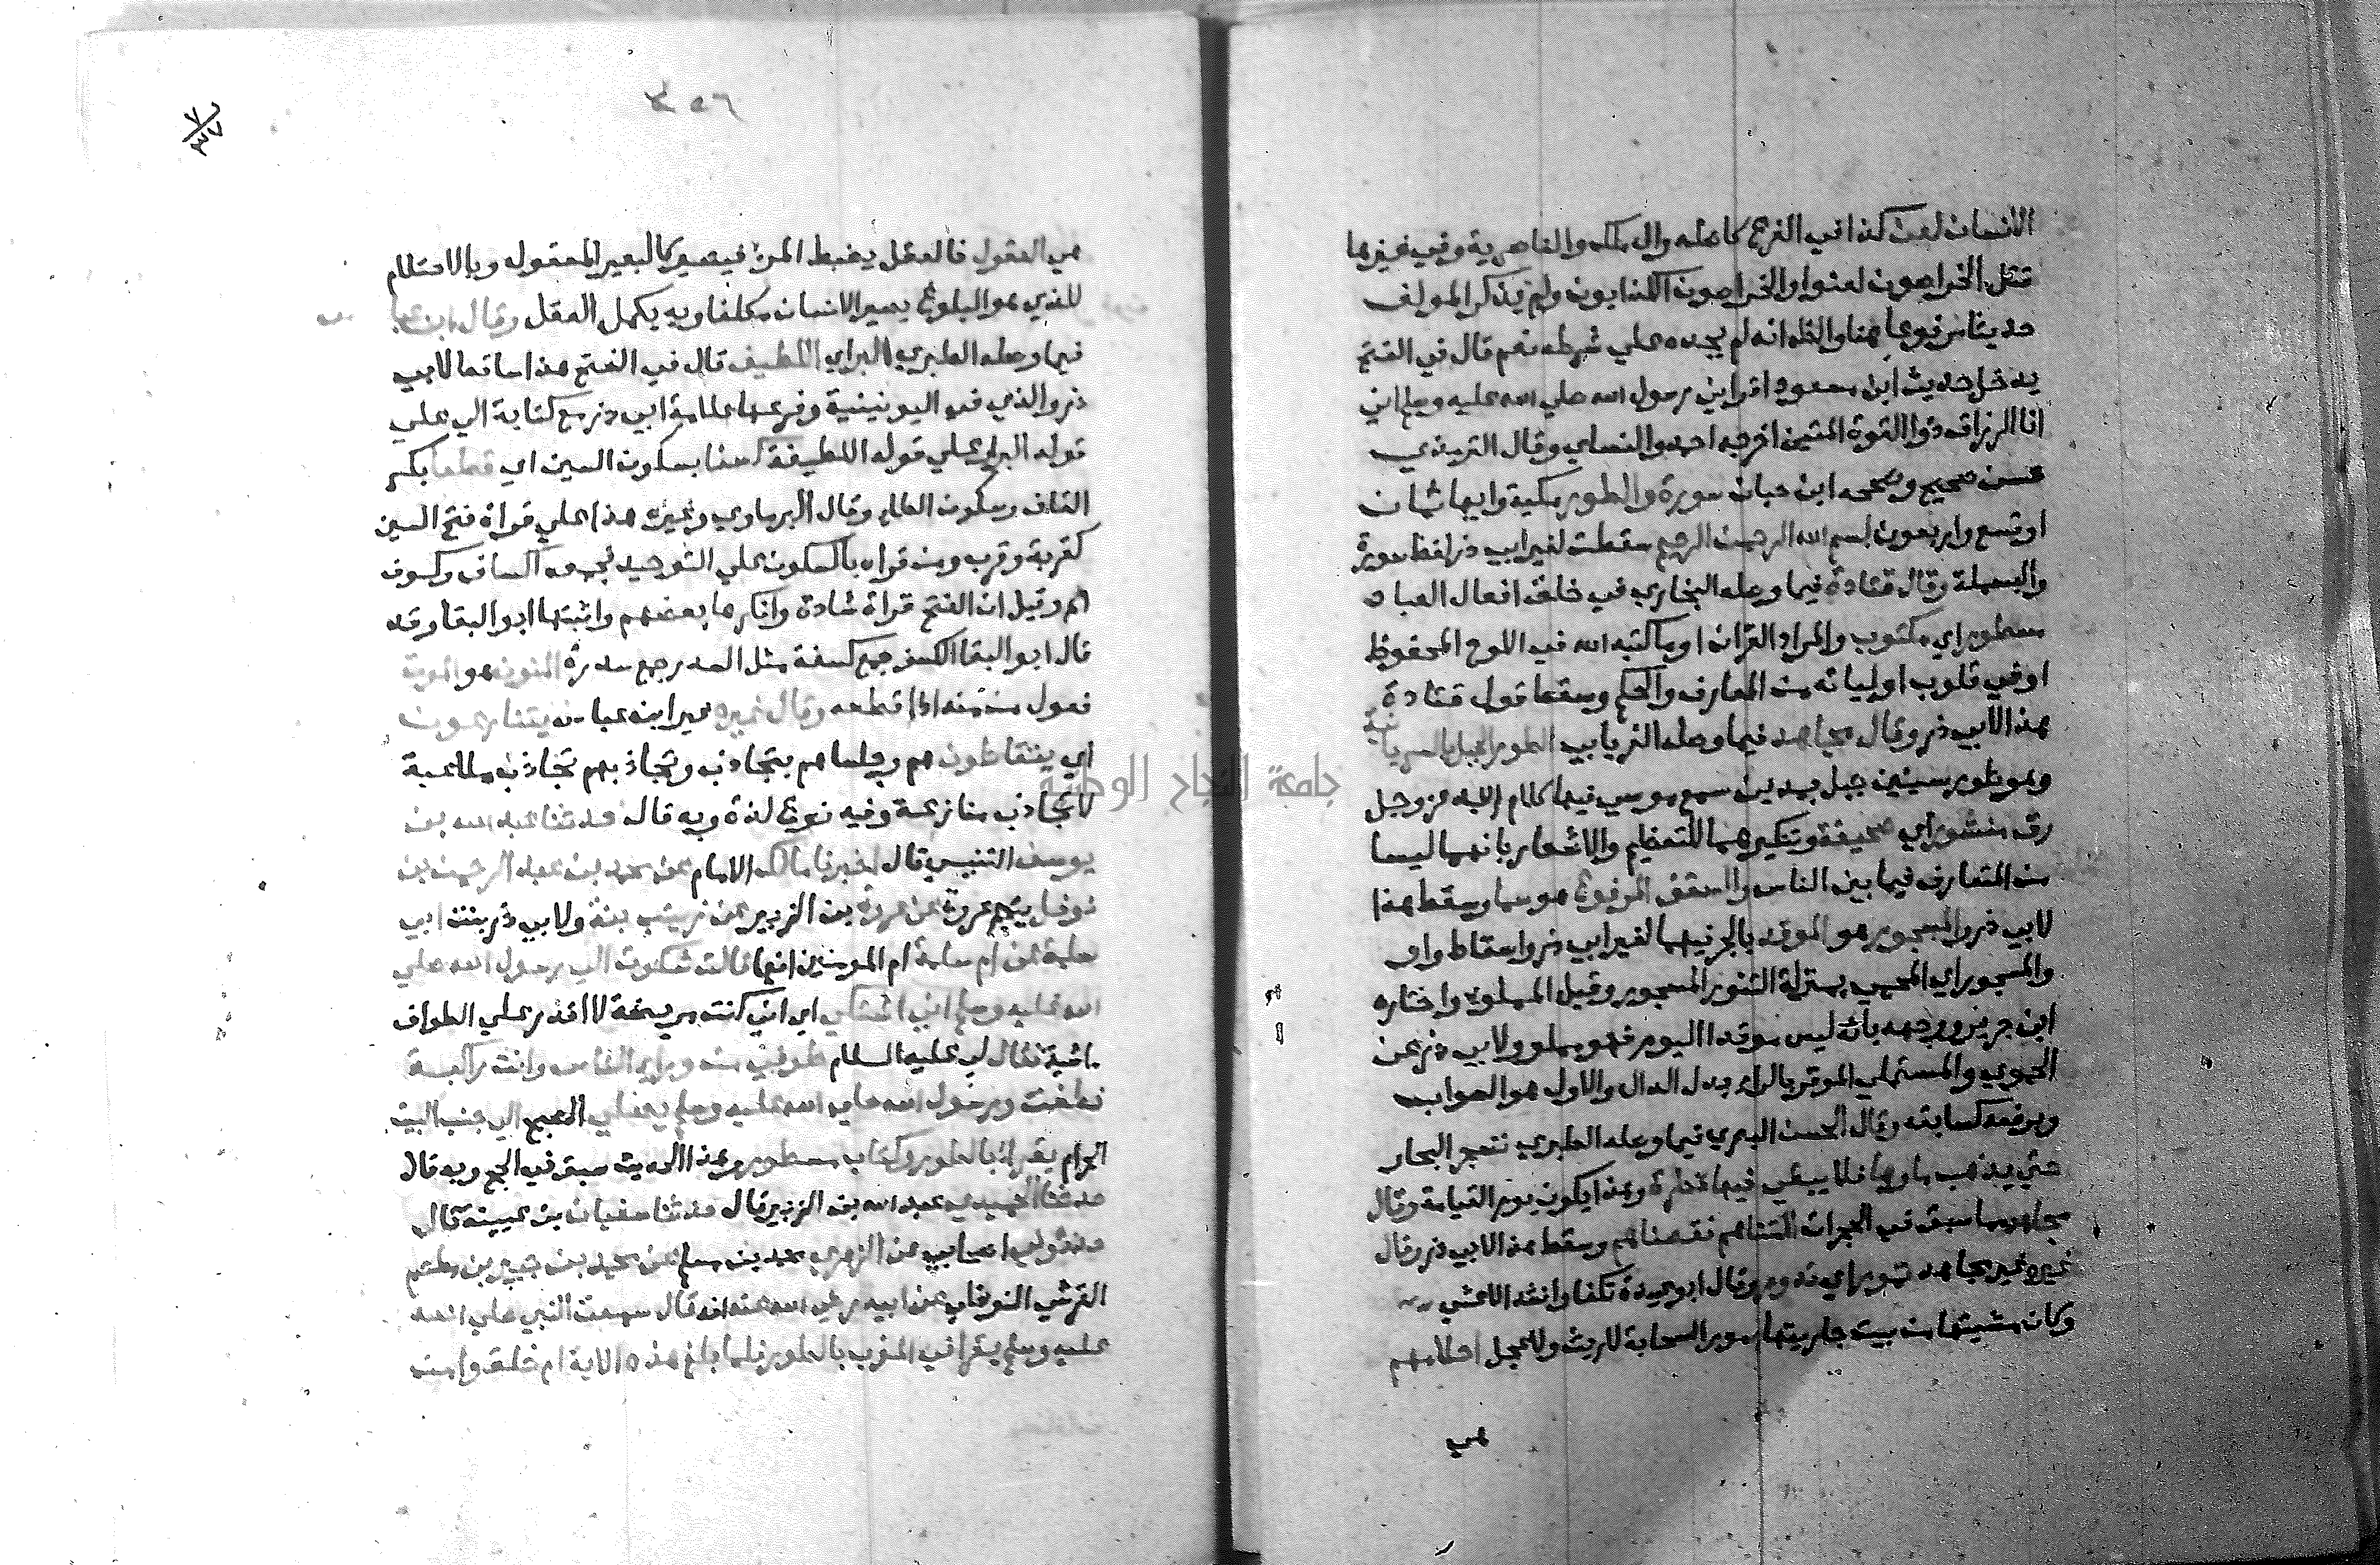 الانسان لعن كذا في الفرع كاصله وال ملك والناصرية وفي غيرها
قتل الخراصون لعنوا والخراصون الكذابون ولم يذكر المولف
حديثا مرفوعا هنا والظ انه لم يجده علي شرطه نعم قال في الفتح
يدخل حديث ابن مسعود اقراني رسول الله صلي الله عليه وسلم اني
انا الرزاق ذوا القوة المتين اخرجه احمد والنساي وقال الترمذي
حسن صحيح وصححه ابن حبان سورة والطور مكية وايها ثمان
او تسع واربعون بسم الله الرحمن الرحيم سقطت لغير ابي ذر لفظ سورة
والبسملة وقال قتادة فيما وصله البخاري في خلق افعال العباد
مسطور اي مكتوب والمراد القران او ما كتبه الله في اللوح المحفوظ
او في قلوب اوليائه من المعارف والحكم وسقط قول قتادة
هذا لابي ذر وقال مجاهد فيما وصله الفريابي الطور الجبل بالسريانية
وهو طور سينين جبل بمدين سمع موسي فيه كلام الله عز وجل
رق منشور اي صحيفة وتنكيرهما للتعظيم والاشعار بانهما ليسا
من المتعارف فيما بين الناس والسقف المرفوع هو سما وسقط هذا
لابي ذر والمسجور هو الموقد بالجر فيهما لغير ابي ذر واسقاط واو
والمسجور اي المحمي بمنزلة التنور المسجور وقيل المملوء واختاره
ابن جرير ووجهه بانه ليس موقدا اليوم فهو مملو ولابي ذر عن
الحموي والمستملي الموقر بالراء بدل الدال والاول هو الصواب
وبرفعه كسابقه وقال الحسن البصري فيما وصله الطبري تسجر البحار
حتي يذهب ماوها فلا يبقي فيها قطرة وهذا يكون يوم القيامة وقال
مجاهد مما سبق في الحجرات التناهم نقصناهم وسقط هذا لابي ذر وقال
غيره غير مجاهد تمور اي تدور وقال ابو عبيدة تكفا وانشد الاعشي
وكان مشيتها من بيت جارتها مور السحابة لا ريث ولا عجل احلامهم
هي
٣٥٦
٧
٣٧
هي العقول فالعقل يضبط المرء فيصير كالبعير المعقول وبالاحتلام
الذي هو البلوغ يصير الانسان مكلفا وبه يكمل العقل وقال ابن عباس
فيما وصله الطبري البر اي اللطيف قال في الفتح هذا ساقط لابي
ذر والذي في اليونينية وفرعها علامة ابي ذر مع كتابة الي علي
قوله البر الي علي قوله اللطيف كسفا بسكون السين اي قطعا بكسر
القاف وسكون الطاء وقال البرماوي وغيره هذا علي قراة فتح السين
كقربة وقرب ومن قراه بالسكون علي التوحيد فجمعه اكساف وكسوف
اهـ وقيل ان الفتح قراة شاذة وانكرها بعضهم واثبتها ابو البقا وقد
قال ابو البقا الكسف جمع كسفة مثل السدر جمع سدرة المنون هو الموت
فعول من منه اذا قطعه وقال غيره غير ابن عباس يتنازعون
اي يتعاطون هم وجلساهم بتجاذب وتجاذبهم تجاذب ملاعبة
لا تجاذب منازعة وفيه نوع لذة وبه قال حدثنا عبد الله بن
يوسف التنيسي قال اخبرنا مالك الامام عن محمد بن عبد الرحمن بن
نوفل يتيم عروة عن عروة بن الزبير عن زينب بنة ولابي ذر بنت ابي
سلمة عن ام سلمة ام المومنين انها قالت شكوت الي رسول الله صلي
الله عليه وسلم اني اشتكي اي اني كنت مريضة لا اقدر علي الطواف
ماشية فقال لي عليه السلام طوفي من وراي الناس وانت راكبة
فطفت ورسول الله صلي الله عليه وسلم يصلي الصبح الي جنب البيت
الحرام يقرا بالطور وكتاب مسطور وهذا الحديث سبق في الحج وبه قال
حدثنا الحميدي عبد الله بن الزبير قال حدثنا سفيان بن عيينة قال
حدثوني اصحابي عن الزهري محمد بن مسلم عن محمد بن جبير بن مطعم
القرشي النوفلي عن ابيه رضي الله عنه انه قال سمعت النبي صلي الله
عليه وسلم يقرا في المغرب بالطور فلما بلغ هذه الاية ام خلقوا من
جامعة النجاح الوطنية